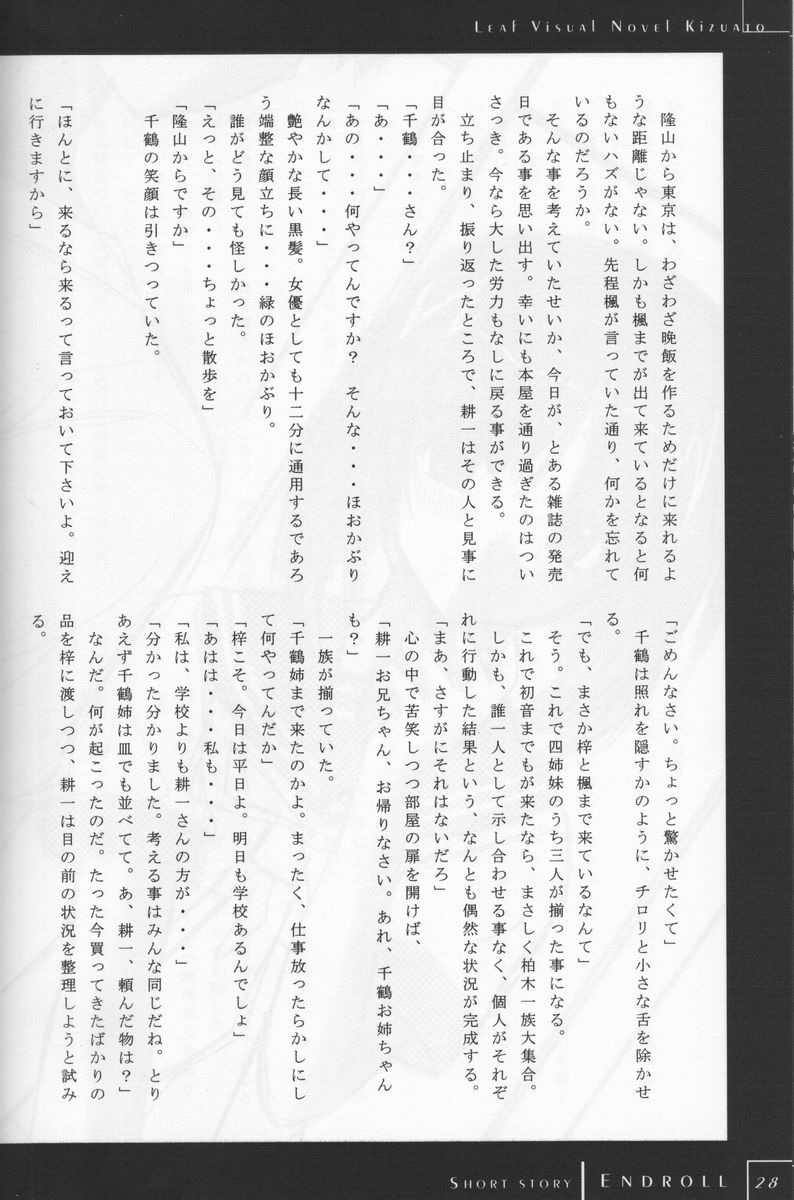 LEAF VISUAL NOVEL KIZUATO
隆山から東京は、わざわざ晩飯を作るためだけに来れるよ
うな距離じゃない。しかも楓までが出て来ているとなると何
もないハズがない。先程楓が言っていた通り、何かを忘れて
いるのだろうか。
そんな事を考えていたせいか、今日が、とある雑誌の発売
日である事を思い出す。幸いにも本屋を通り過ぎたのはつい
さっき。今なら大した労力もなしに戻る事ができる。
立ち止まり、振り返ったところで、耕一はその人と見事に
目が合った。
「千鶴・・・さん？」
「あ・・・」
「あの・・・何やってんですか？　そんな・・・ほおかぶり
なんかして・・・」
艶やかな長い黒髪。女優としても十二分に通用するであろ
う端整な顔立ちに・・・緑のほおかぶり。
誰がどう見ても怪しかった。
「えっと、その・・・ちょっと散歩を」
「隆山からですか」
千鶴の笑顔は引きつっていた。
「ほんとに、来るなら来るって言っておいて下さいよ。迎え
に行きますから」
「ごめんなさい。ちょっと驚かせたくて」
千鶴は照れを隠すかのように、チロリと小さな舌を除かせ
る。
「でも、まさか梓と楓まで来ているなんて」
そう。これで四姉妹のうち三人が揃った事になる。
これで初音までもが来たなら、まさしく柏木一族大集合。
しかも、誰一人として示し合わせる事なく、個人がそれぞ
れに行動した結果という、なんとも偶然な状況が完成する。
「まあ、さすがにそれはないだろ」
心の中で苦笑しつつ部屋の扉を開けば、
「耕一お兄ちゃん、お帰りなさい。あれ、千鶴お姉ちゃん
も？」
一族が揃っていた。
「千鶴姉まで来たのかよ。まったく、仕事放ったらかしにし
て何やってんだか」
「梓こそ。今日は平日よ。明日も学校あるんでしょ」
「あはは・・・私も・・・」
「私は、学校よりも耕一さんの方が・・・」
「分かった分かりました。考える事はみんな同じだね。とり
あえず千鶴姉は皿でも並べてて。あ、耕一、頼んだ物は？」
なんだ。何が起こったのだ。たった今買ってきたばかりの
品を梓に渡しつつ、耕一は目の前の状況を整理しようと試み
る。
SHORT STORY ENDROLL 28